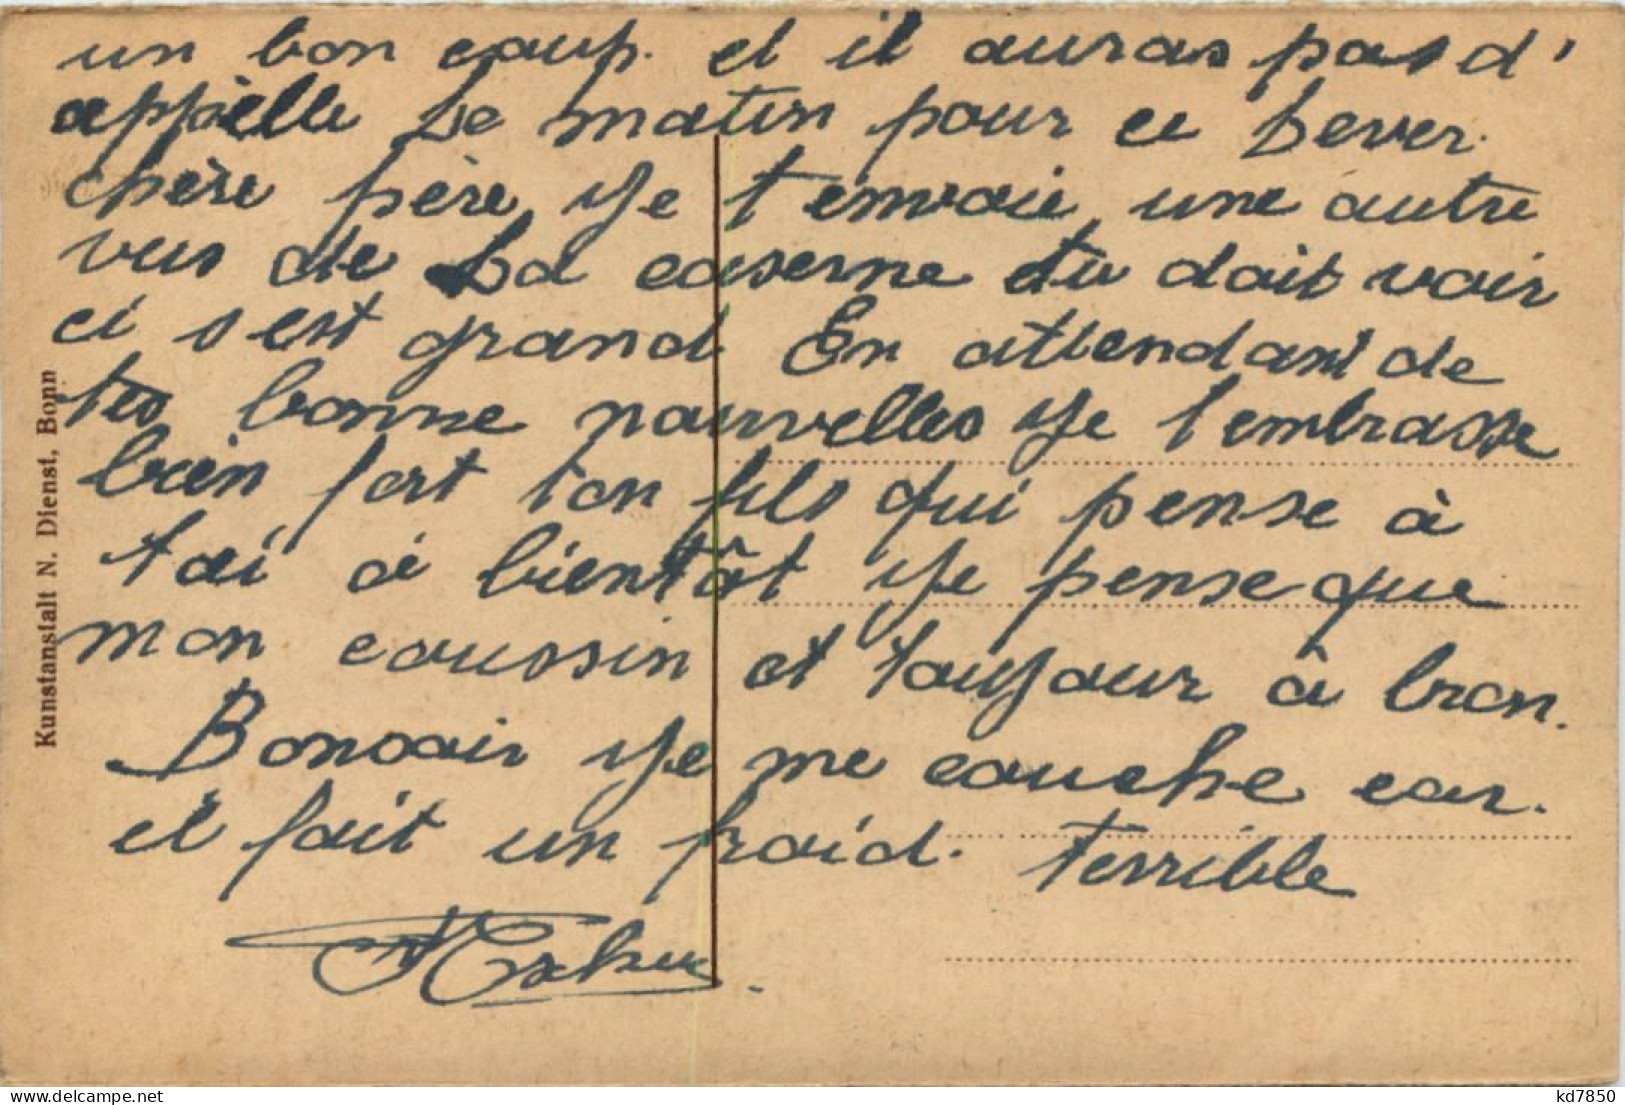 un bon coup. et il auras pas d'
appelle Le matin pour ce Lever.
chère père Je t'envoie une autre
vus de La caserne tu doit voir
ci s'est grand En attendant de
tes bonne nouvelles Je t'embrasse
bien fort ton fils qui pense à
toi à bientôt Je pense que
mon coussin et toujour à bron.
Bonsoir Je me couche car.
il fait un froid. terrible
Kunstanstalt N. Dienst, Bonn
delcampe.net
kd7850